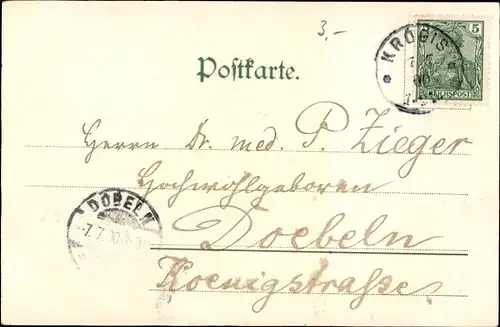 3,-
KRÖGIS
5
REICHSPOST
Postkarte.
Herrn Dr. med. P. Zieger
Hochwohlgeboren
DÖBELN
7.7.00
Doebeln
Koenigstraße.